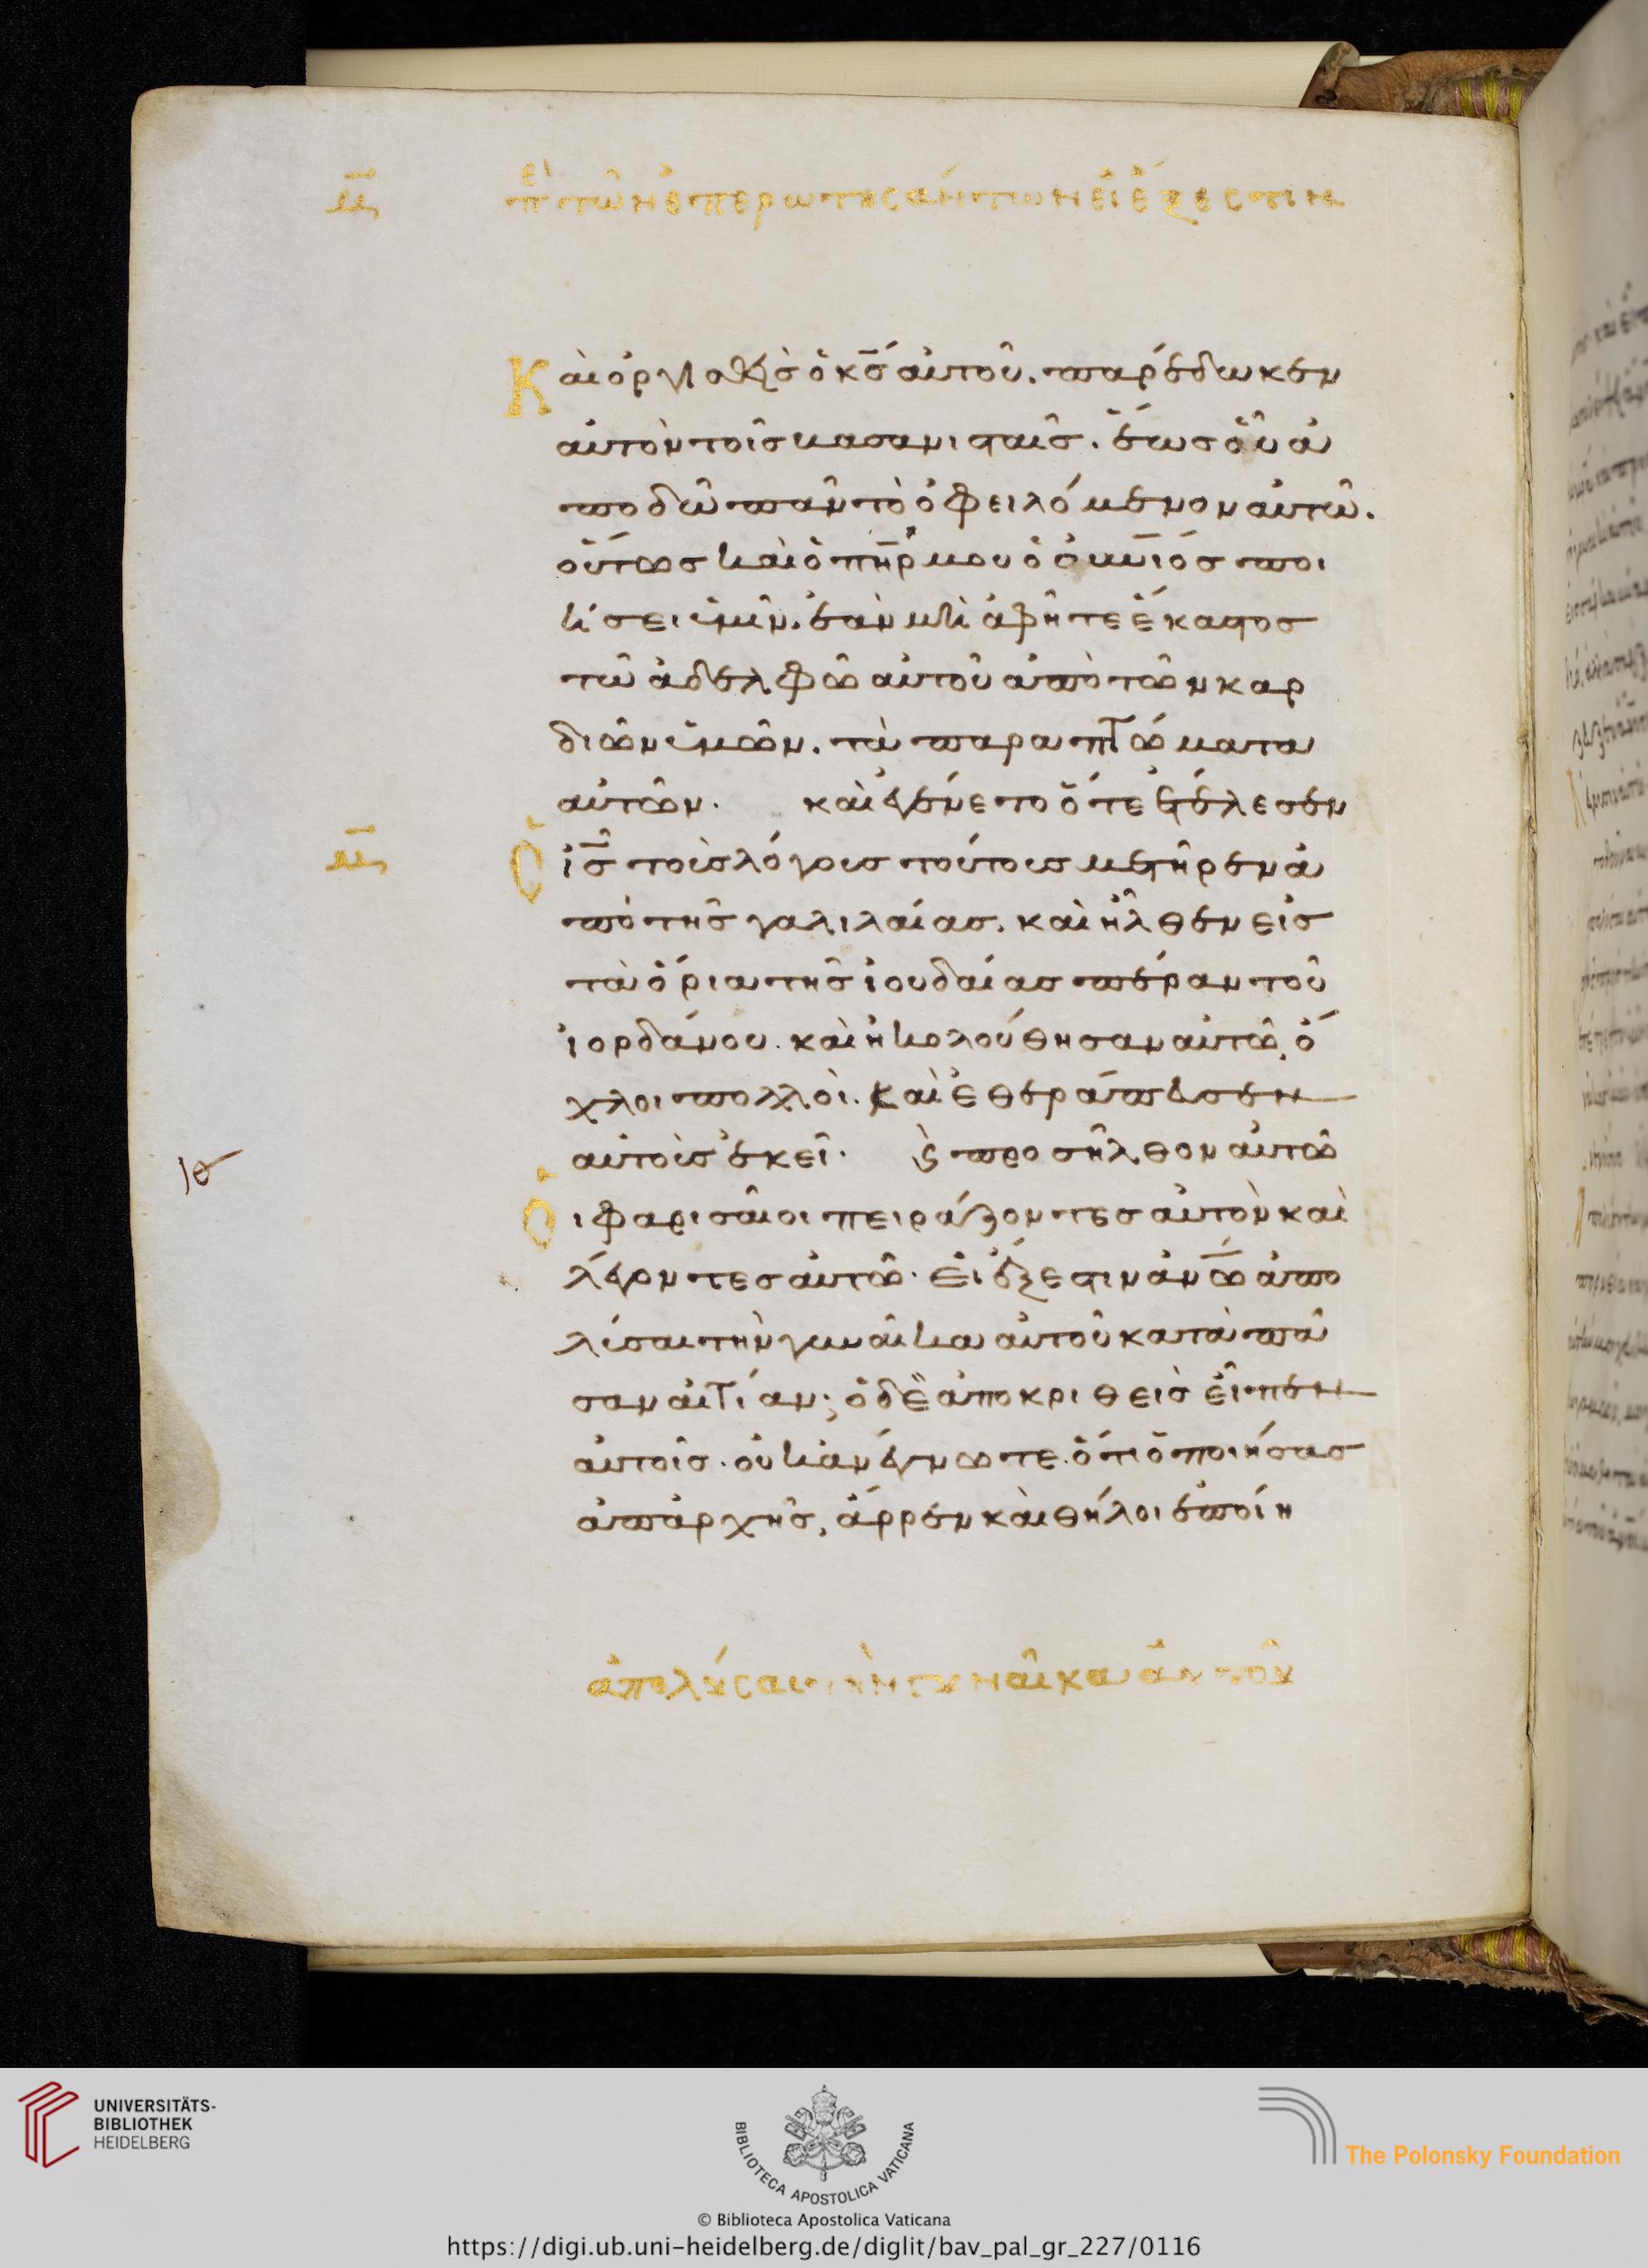 μ̅ περὶ τῶν ἐπερωτησάντων εἰ ἔξεστιν
Καὶ ὀργισθεὶς ὁ κ̅ς̅ αὐτοῦ. παρέδωκεν
αὐτὸν τοῖς βασανισταῖς. ἕως οὗ ἀ
ποδῶ πᾶν τὸ ὀφειλόμενον αὐτῶ.
οὕτως καὶ ὁ π̅η̅ρ̅ μου ὁ ο̅υ̅ν̅ιός ποι
ήσει ὑμῖν. ἐὰν μὴ ἀφῆτε ἕκαστος
τῶ ἀδελφῶ αὐτοῦ ἀπὸ τῶν καρ
διῶν ὑμῶν. τὰ παραπτώματα
αὐτῶν. καὶ ἐγένετο ὅτε ἐτέλεσεν
μ̅ Ὁ ι̅ς̅ τοὺς λόγους τούτους μετῆρεν ἀ
πὸ τῆς γαλιλαίας. καὶ ἦλθεν εἰς
τὰ ὅρια τῆς ἰουδαίας πέραν τοῦ
ἰορδάνου. καὶ ἠκολούθησαν αὐτῶ, ὄ
χλοι πολλοὶ. καὶ ἐθεράπευσεν
αὐτοὺς ἐκεῖ. ϗ προσῆλθον αὐτῶ
Ὁι φαρισαῖοι πειράζοντες αὐτὸν καὶ
λέγοντες αὐτῶ. εἰ ἔξεστιν α̅ν̅ω̅ ἀπο
λύσαι τὴν γυναῖκα αὐτοῦ κατὰ πᾶ
σαν αἰτίαν; ὁ δὲ ἀποκριθεὶς εἶπεν
αὐτοῖς. οὐκ ἀνέγνωτε. ὅτι ὁ ποιήσας
ἀπαρχῆς, ἄρρεν καὶ θήλοι ἐποίη
ἀπολύσαι τὴν γυναῖκα αὐτοῦ
UNIVERSITÄTS-
BIBLIOTHEK
HEIDELBERG
BIBLIOTECA APOSTOLICA VATICANA
The Polonsky Foundation
© Biblioteca Apostolica Vaticana
https://digi.ub.uni-heidelberg.de/diglit/bav_pal_gr_227/0116